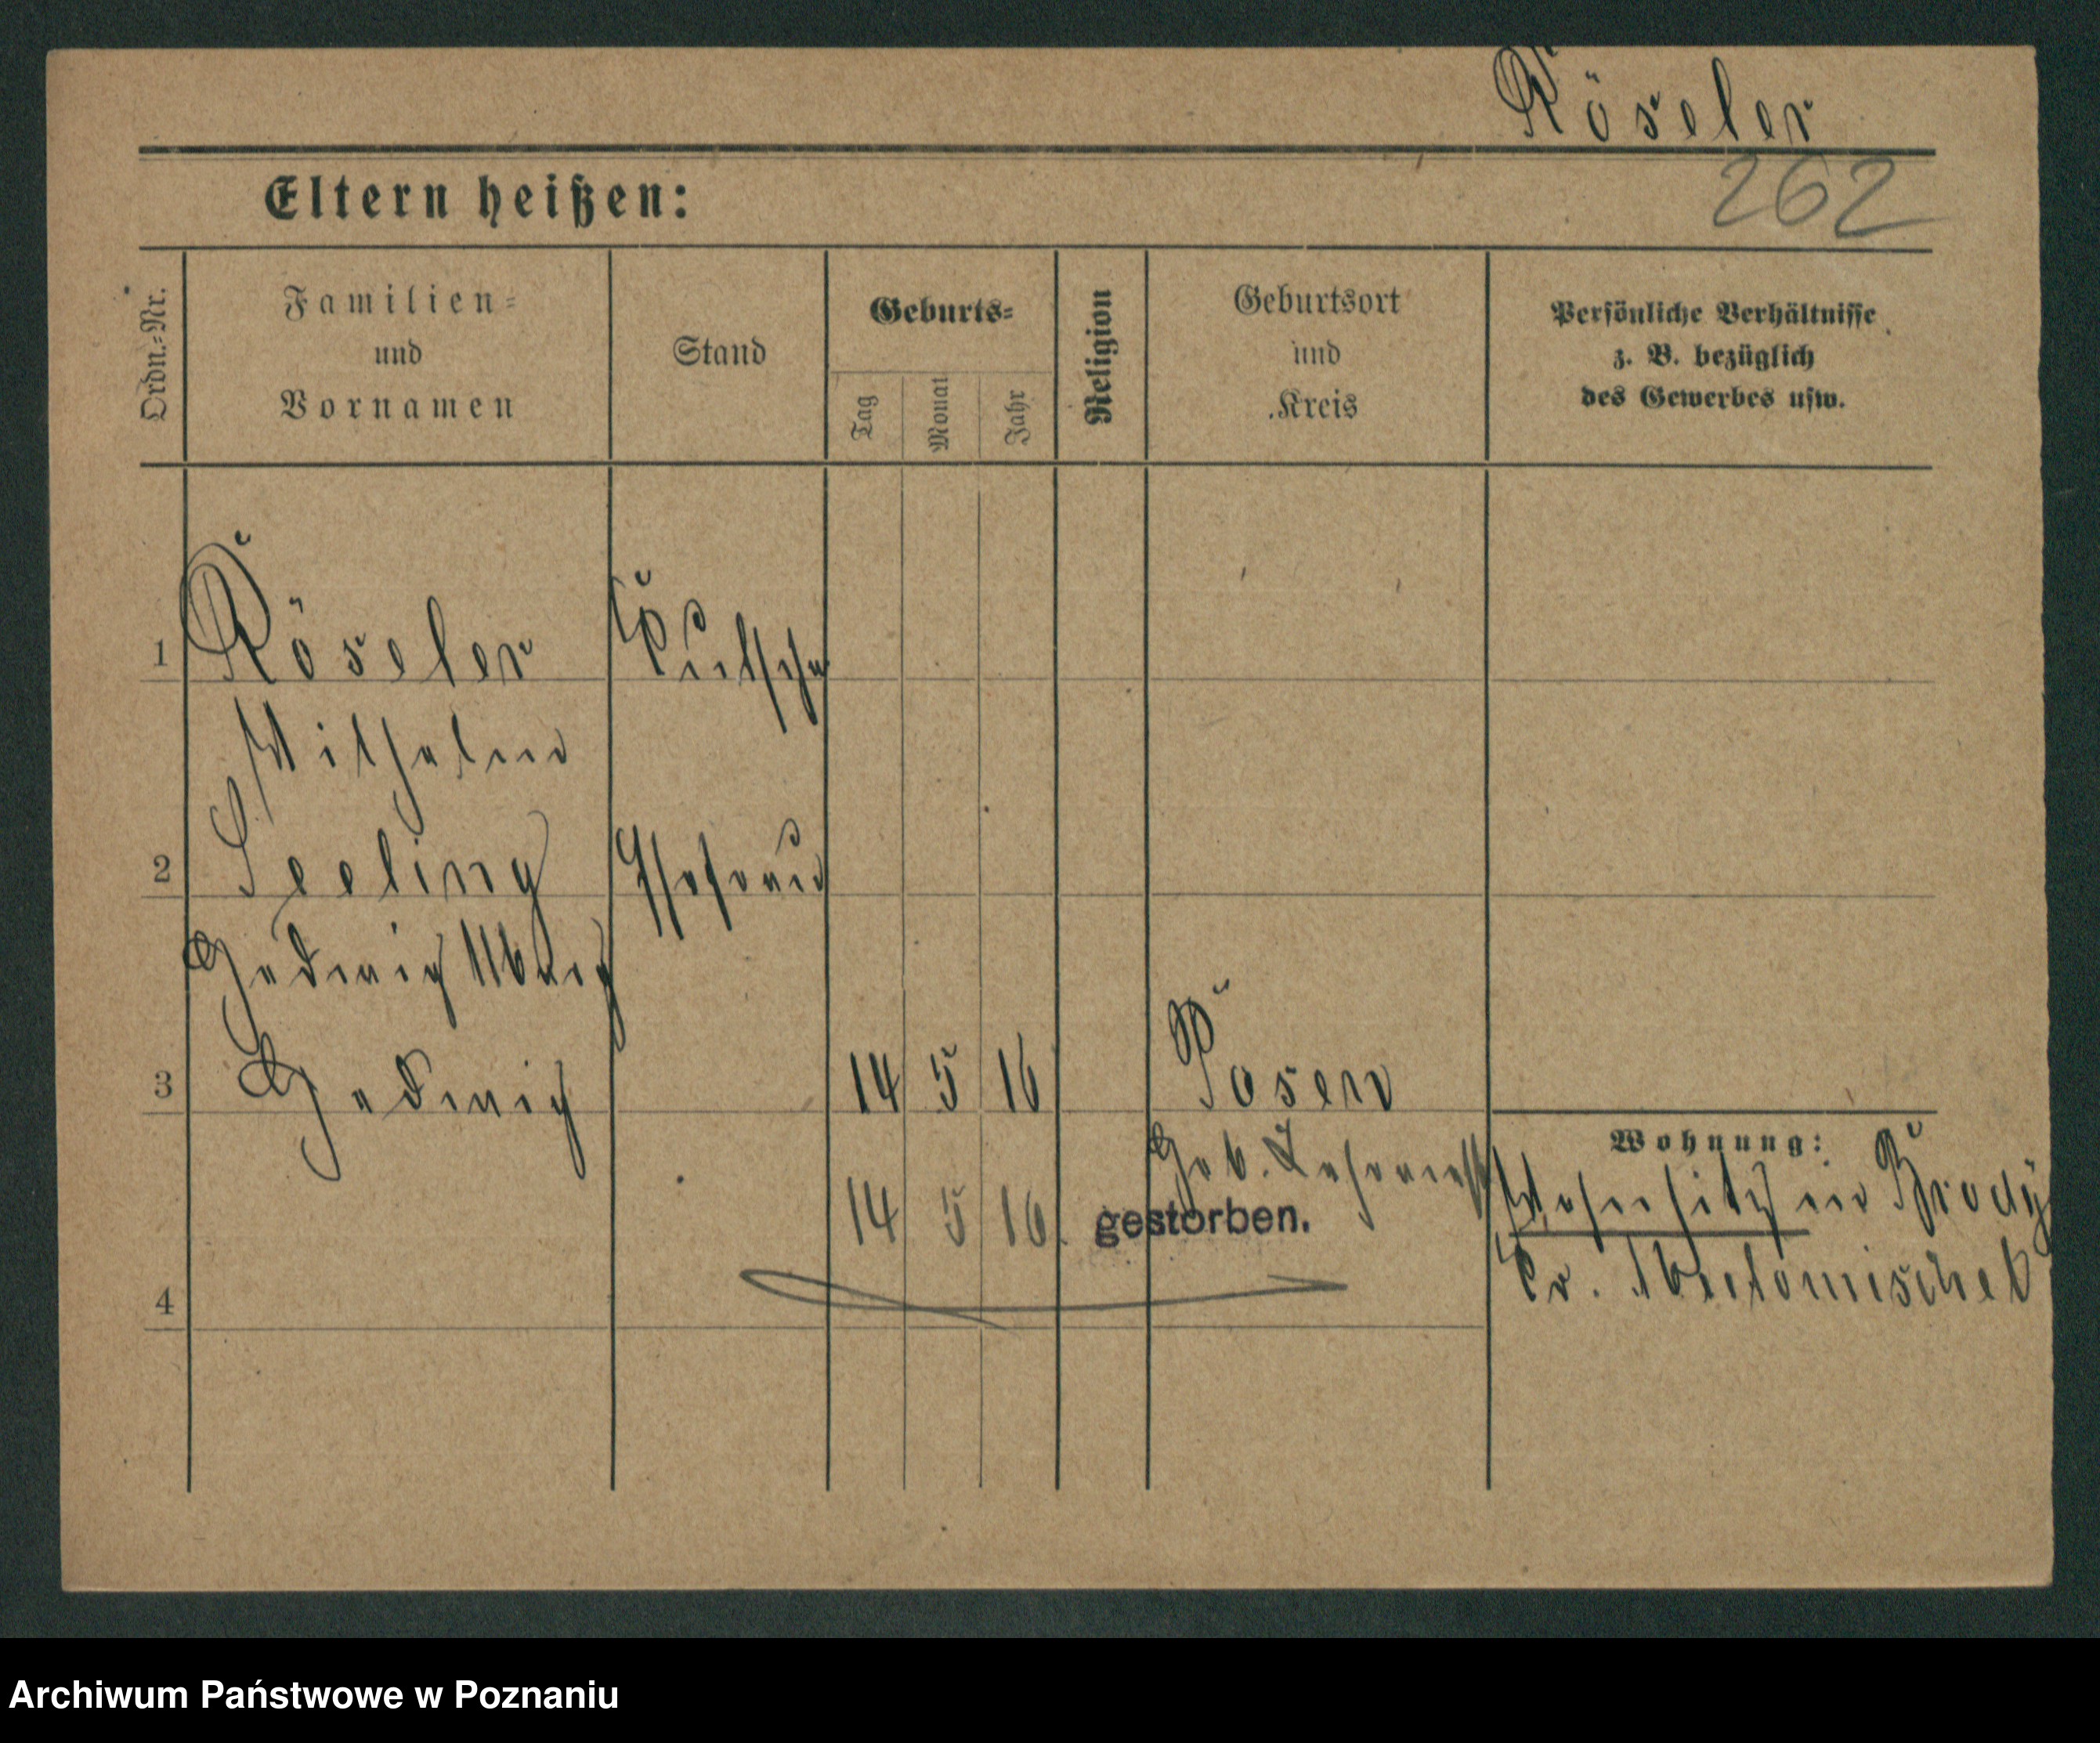 Röseler
262
Eltern heißen:
Ordn.-Nr.
Familien-
und
Vornamen
Stand
Geburts-
Tag
Monat
Jahr
Religion
Geburtsort
und
Kreis
Persönliche Verhältnisse
z. B. bezüglich
des Gewerbes usw.
1 Röseler Kutscher
Wilhelm
2 Seeling Ehefrau
Hedwig
3 Hedwig 14 5 16 Posen
Wohnung:
Geb.
Wohnsitz in Brody
14 5 16 gestorben.
Kr. Neutomischel
4
Archiwum Państwowe w Poznaniu